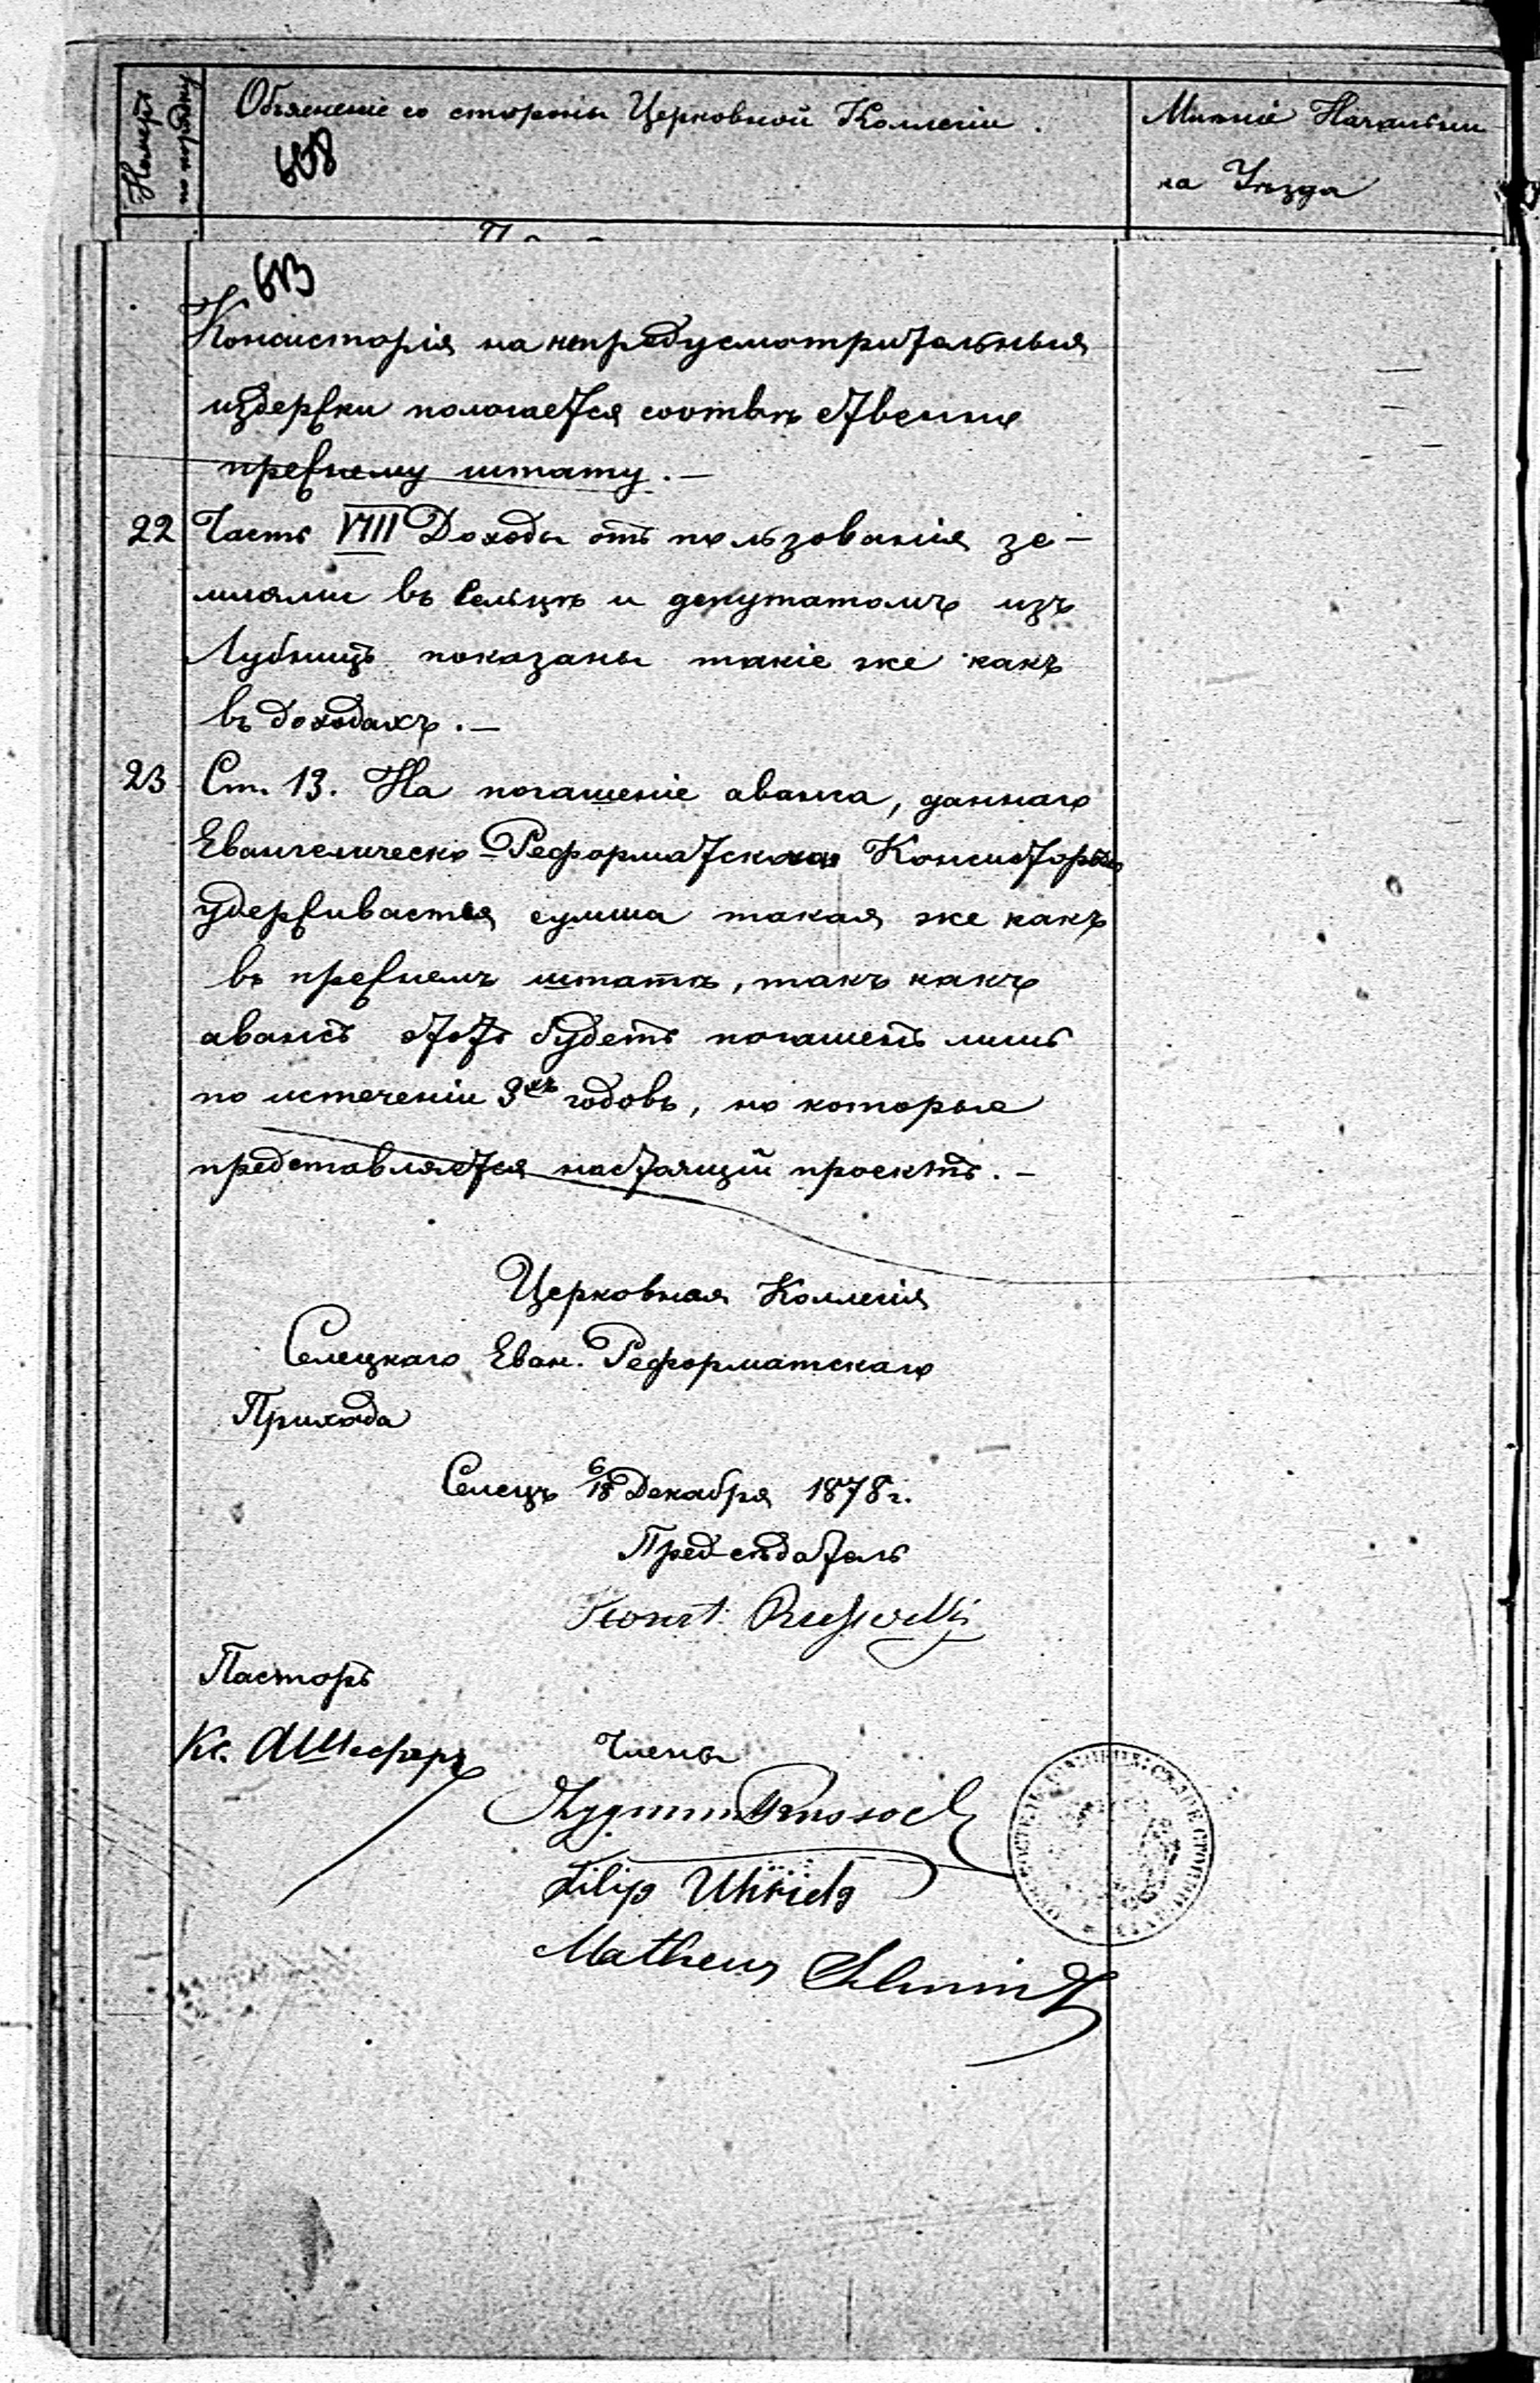 Номеръ по порядку
Объясненіе со стороны Церковной Коллегіи.
608
Мнѣніе Начальни
ка Уѣзда
613
Консисторія на непредусмотрительныя
издержки полагается соотвѣтственно
прежнему штату. —
22 Часть VIII Доходы отъ пользованія зе-
млями въ Сельцѣ и депутатомъ изъ
Лубницъ показаны такіе же какъ
въ доходахъ. —
23 Ст. 13. На погашеніе аванса, даннаго
Евангелическо-Реформатскою Консисторіею
удерживается сумма такая же какъ
въ прежнемъ штатѣ, такъ какъ
авансъ этотъ будетъ погашенъ лишь
по истеченіи 3хъ годовъ, на которые
представляется настоящій проектъ. —
Церковная Коллегія
Селецкаго Еван. Реформатскаго
Прихода
Селецъ 6/18 Декабря 1878 г.
Предсѣдатель
Konst.
Пасторъ
Кс. А Шефферъ
Члены
Zygmunt
Filip
Matheus Schmidt